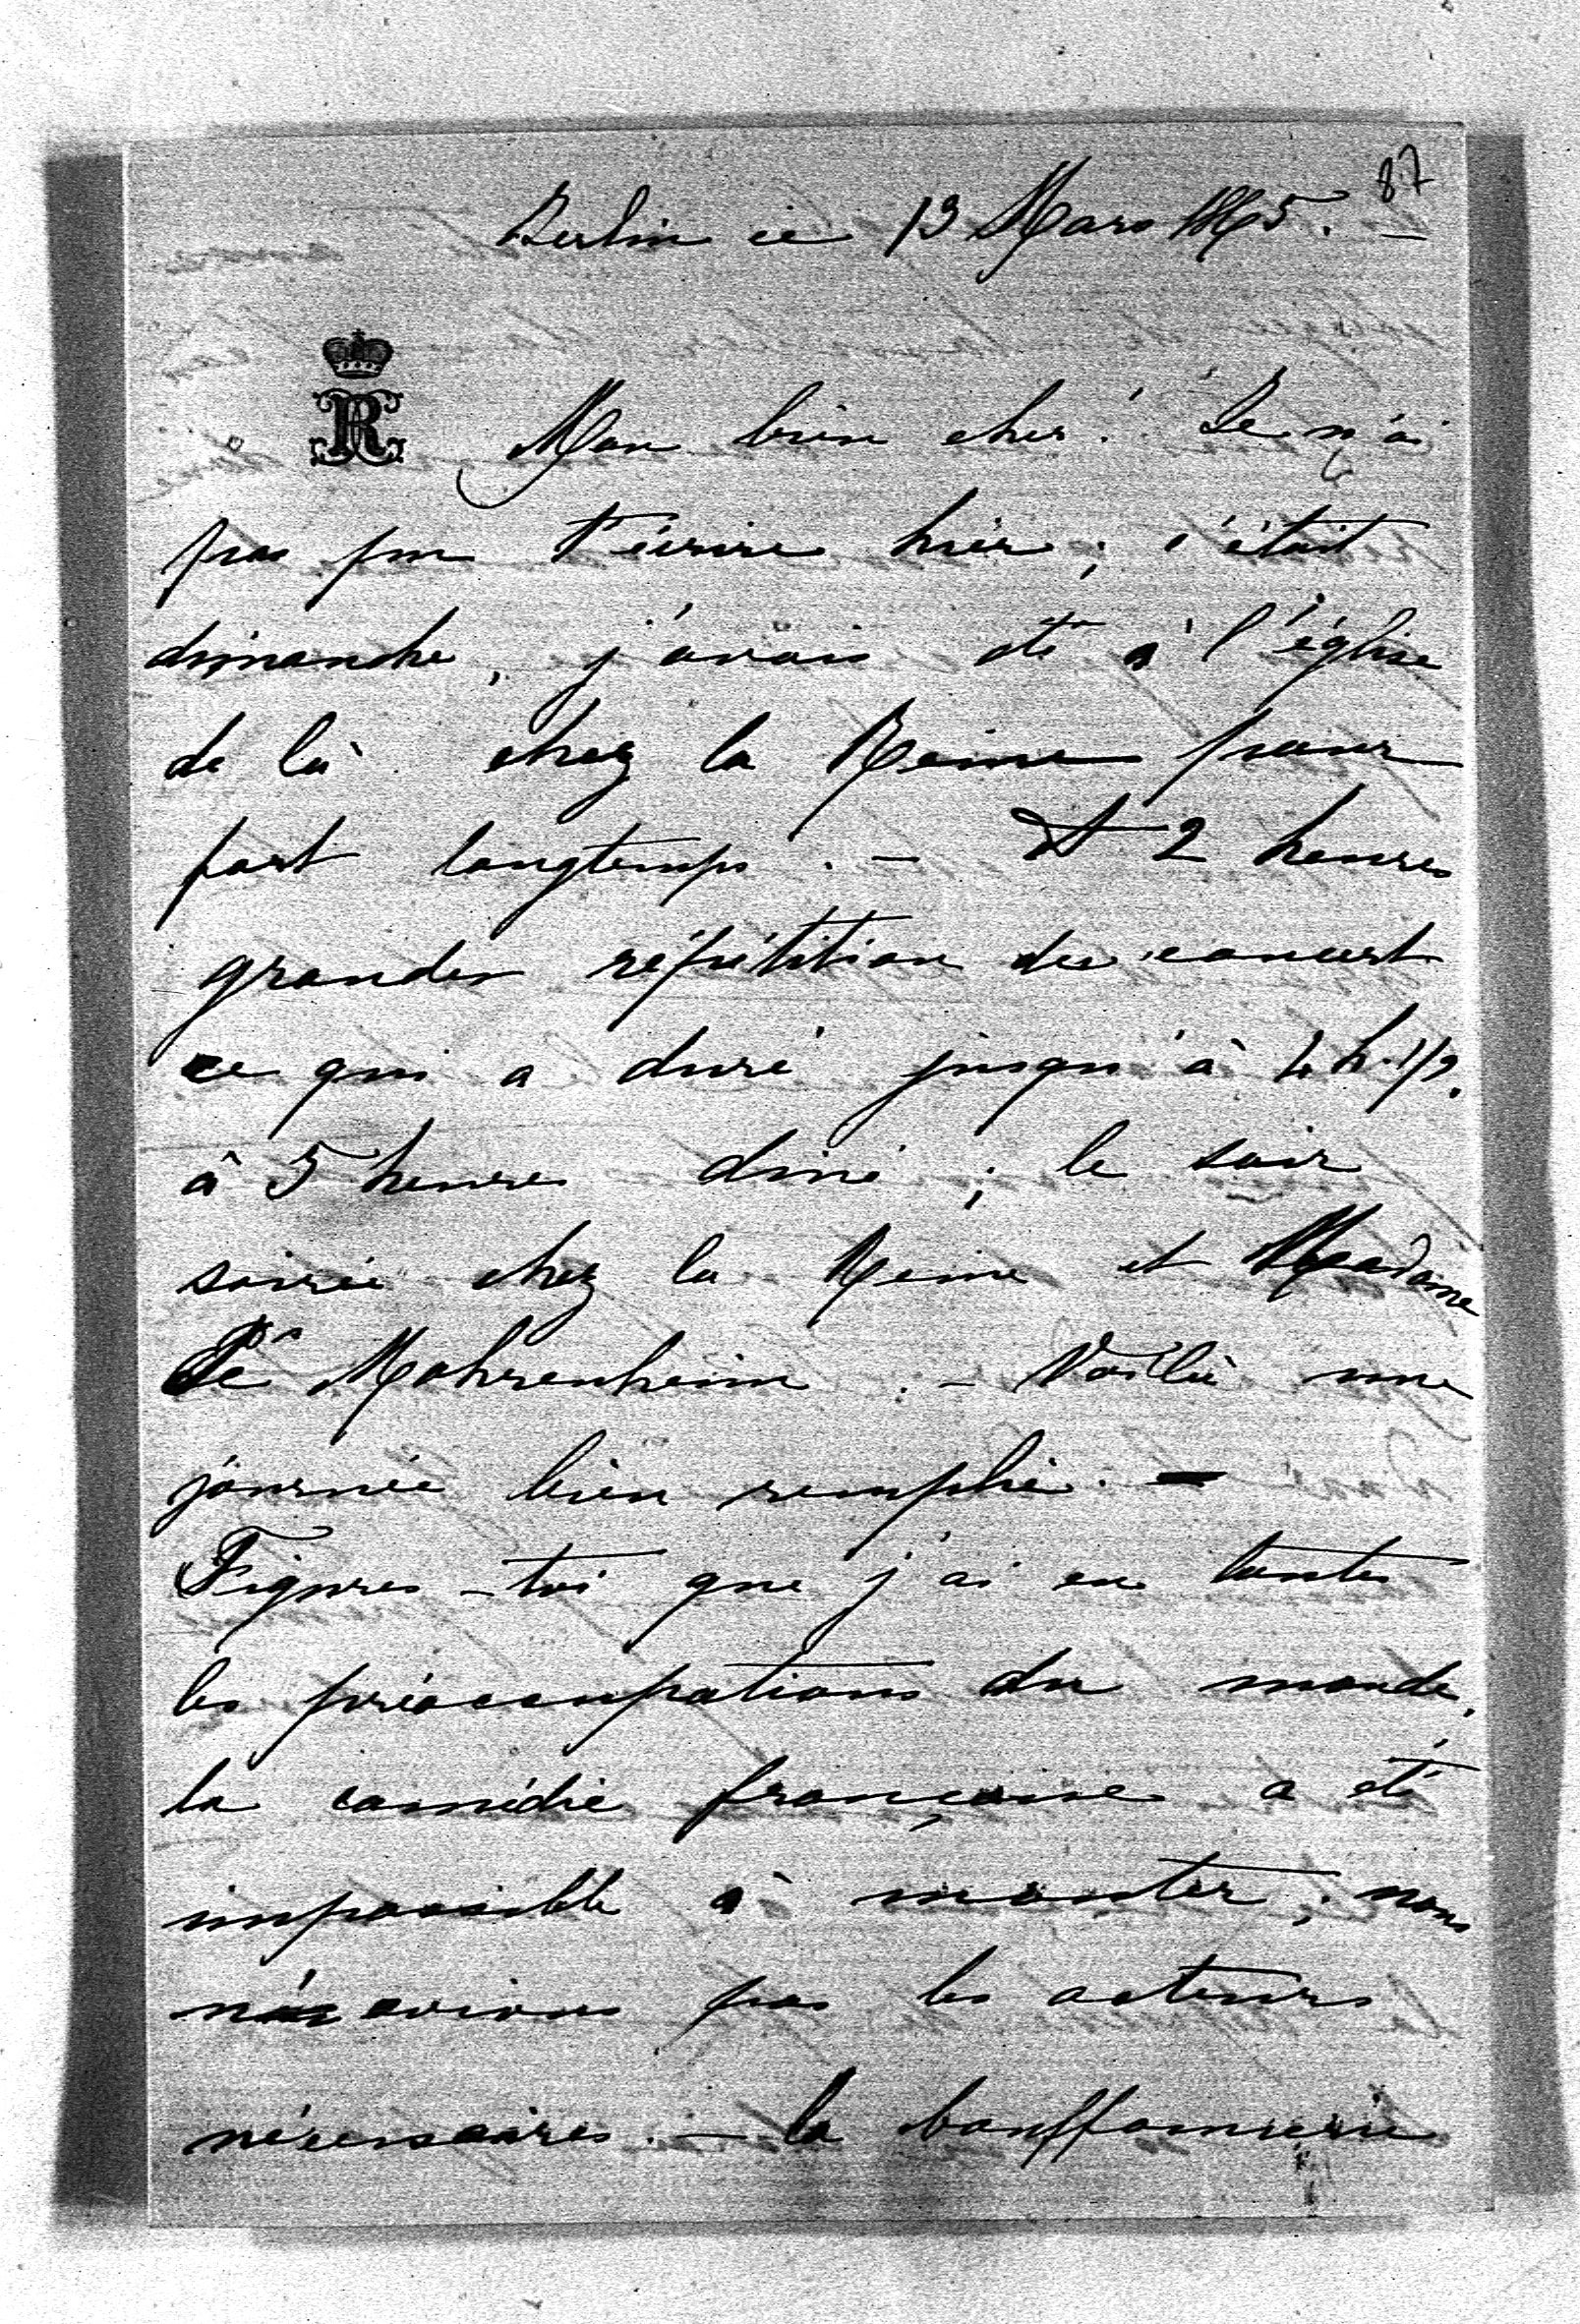 87
Berlin ce 13 Mars 1865. —
R
Mon bien cher! Je n'ai
pas pu t'écrire hier; c'était
dimanche, j'avais été à l'église
de là chez la Reine pour
fort longtemps. — A 2 heures
grande répétition du concert
ce qui a duré jusqu'à 4 h. 1/2.
à 5 heures diné; le soir
soirée chez la Reine et Madame
de Mohrenheim. — Voilà une
journée bien remplie. —
Figures-toi que j'ai eu toutes
les préoccupations du monde,
la comédie française a été
impossible à monter; nous
n'avions pas les acteurs
nécessaires. — la bouffonnerie